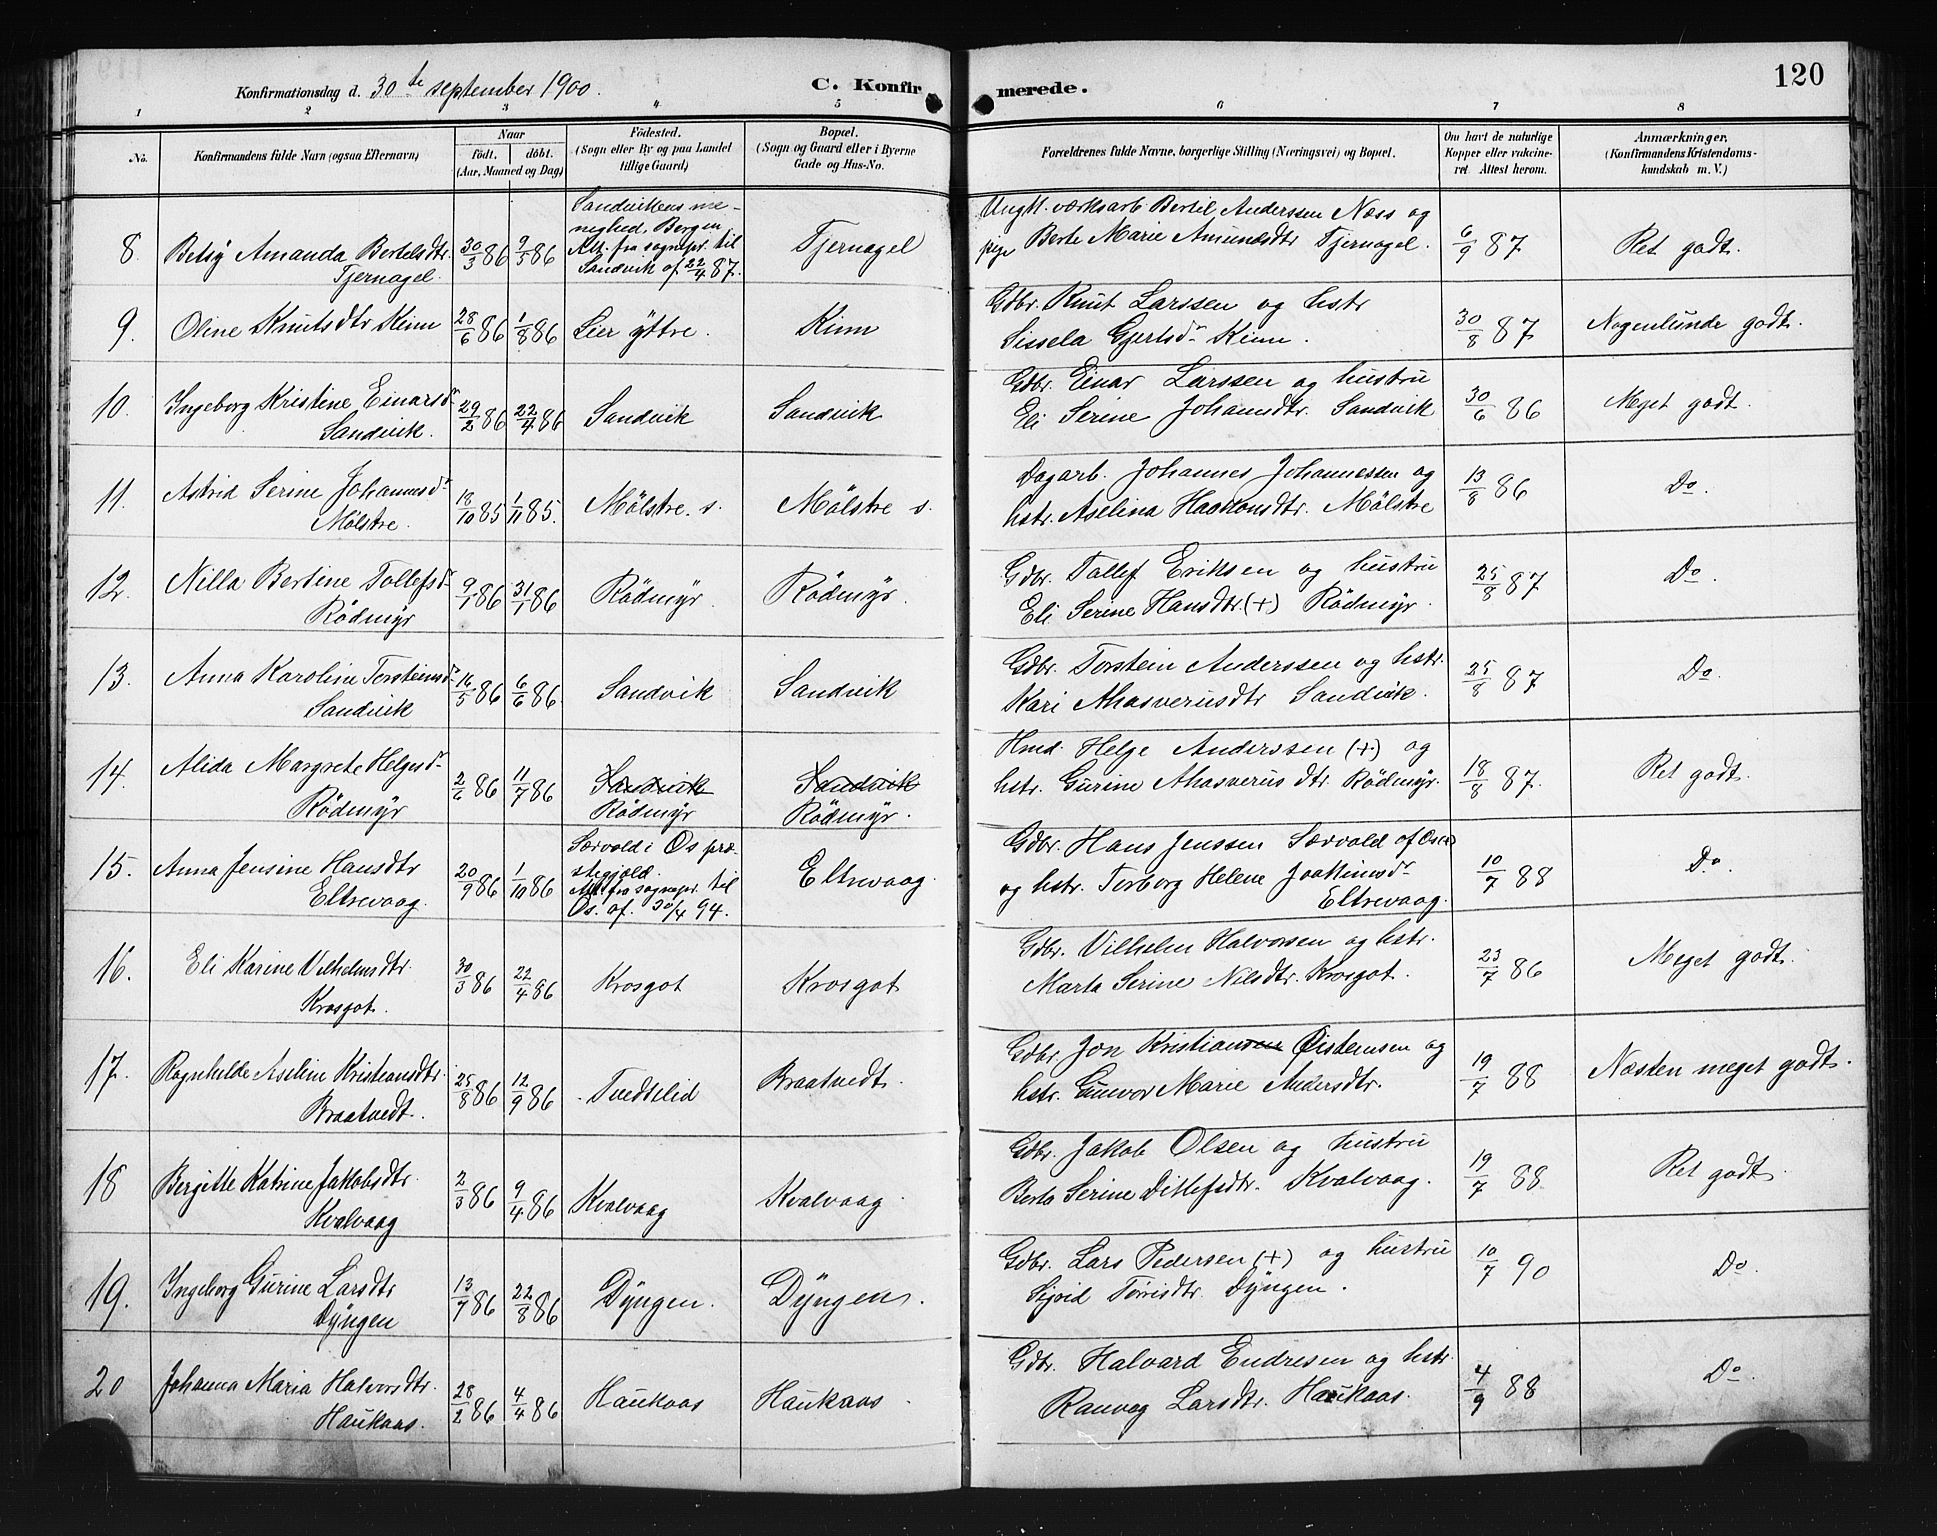 120
Konfirmationsdag d. 30te september 1900.
C. Konfirmerede.
1 2 3 4 5 6 7 8
No.
Konfirmandens fulde Navn (ogsaa Efternavn)
Naar
födt. döbt.
(Aar, Maaned og Dag)
Födested.
(Sogn eller By og paa Landet
tillige Gaard)
Bopæl.
(Sogn og Gaard eller i Byerne
Gade og Hus-No.
Forældrenes fulde Navne, borgerlige Stilling (Næringsvei) og Bopæl.
Om havt de naturlige
Kopper eller vakcine-
ret. Attest herom.
Anmærkninger,
(Konfirmandens Kristendoms-
kundskab m. V.)
8. Betsy Amanda Bertelsdtr.
Tjernagel.
30/3 86 9/5 86
Sandvikens me-
nighed, Bergen
Att. fra sognepr. til
Sandvik af 22/4 87.
Tjernagel
Ungk. værksarb Bertil Anderssen Næss og
pige Berte Marie Amundsdtr Tjernagel.
6/9 87
Ret godt.
9. Oline Knutsdtr Kinn
28/6 86 1/8 86
Lier yttre.
Kinn
Gdbr. Knut Larssen og hstr
Sissela Gjertsdr Kinn.
30/8 87
Nogenlunde godt.
10. Ingeborg Kristine Einarsdr
Sandvik.
29/2 86 22/4 86
Sandvik
Sandvik
Gdbr. Einar Larssen og hustru
Eli Serine Johannsdtr. Sandvik
30/6 86
Meget godt.
11. Astrid Serine Johannesdr
Mölstre.
18/10 85 1/11 85.
Mölstre. s.
Mölstre s.
Dagarb. Johannes Johannessen og
hstr. Aselina Haakonsdtr. Mölstre
13/8 86
Do.
12. Nilla Bertine Tollefsdr
Rödmyr
9/1 86 31/1 86
Rödmyr.
Rödmyr.
Gdbr. Tollef Eriksen og hustru
Eli Serine Hansdtr. (+) Rödmyr.
25/8 87
Do.
13. Anna Karoline Torsteinsdr
Sandvik
16/5 86 6/6 86.
Sandvik
Sandvik
Gdbr. Torstein Anderssen og hstr.
Kari Ahasverusdtr Sandvik.
25/8 87
Do.
14. Alida Margrete Helgesdr
Rödmyr
2/6 86 11/7 86
Sandvik
Rödmyr
Sandvik
Rödmyr.
Hmd. Helge Anderssen (+) og
hstr. Gurine Ahasverusdtr. Rödmyr.
18/8 87.
Ret godt.
15. Anna Jensine Hansdtr
Eltrevaag.
20/9 86 1/10 86
Særvold i Os præ-
stegjæld.
Att. fra sognepr. til
Os. af. 30/4 94.
Eltrevaag
Gdbr. Hans Jenssen Særvold af Os
og hstr. Torborg Helene Joakimsdr
Eltrevaag.
10/7 88
Do.
16. Eli Karine Vilhelmsdtr.
Krosgot.
30/3 86 22/4 86
Krosgot
Krosgot
Gdbr. Vilhelm Halvorsen og hstr.
Marta Serine Nilsdtr. Krosgot.
23/7 86
Meget godt.
17. Ragnhilde Aseline Kristiansdtr.
Braatvedt.
25/8 86 12/9 86
Tvedtelid
Braatvedt.
Gdbr. Jon Kristiansen Öistensen og
hstr. Gunvor Marie Andersdtr.
19/7 88
Næsten meget godt.
18 Bergitte Katrine Jakobsdtr.
Kvalvaag
2/3 86 9/4 86
Kvalvaag
Kvalvaag.
Gdbr. Jakob Olsen og hustru
Berta Serine Ditlefsdtr. Kvalvaag.
19/7 88.
Ret godt.
19. Ingeborg Gurine Larsdtr
Dyngen
13/7 86 22/8 86
Dyngen.
Dyngen.
Gdbr. Lars Pedersen (+) og hustru
Sigrid Torrisdtr. Dyngen.
10/7 90
Do.
20 Johanna Maria Halvorsdtr.
Haukaas.
28/2 86 4/4 86
Haukaas
Haukaas.
Gdbr. Halvard Endresen og hstr.
Ranvag Larsdtr. Haukaas.
4/9 88
Do.